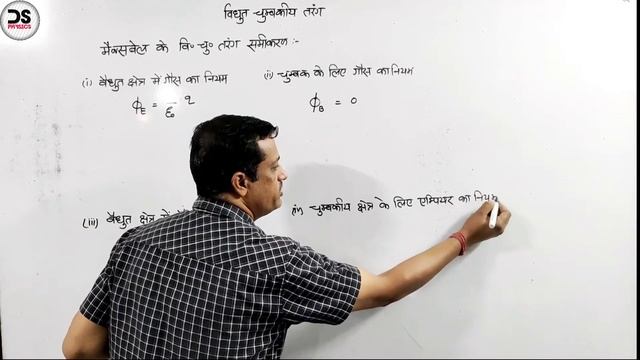 DS
PHYSICS
विद्युत चुम्बकीय तरंग
मैक्सवेल के वि० चु० तरंग समीकरण :-
(i) वैद्युत क्षेत्र में गौस का नियम
(ii) चुम्बक के लिए गौस का नियम
ϕE = q/ε₀
ϕB = 0
(iii) वैद्युत क्षेत्र में
(iv) चुम्बकीय क्षेत्र के लिए एम्पियर का नियम